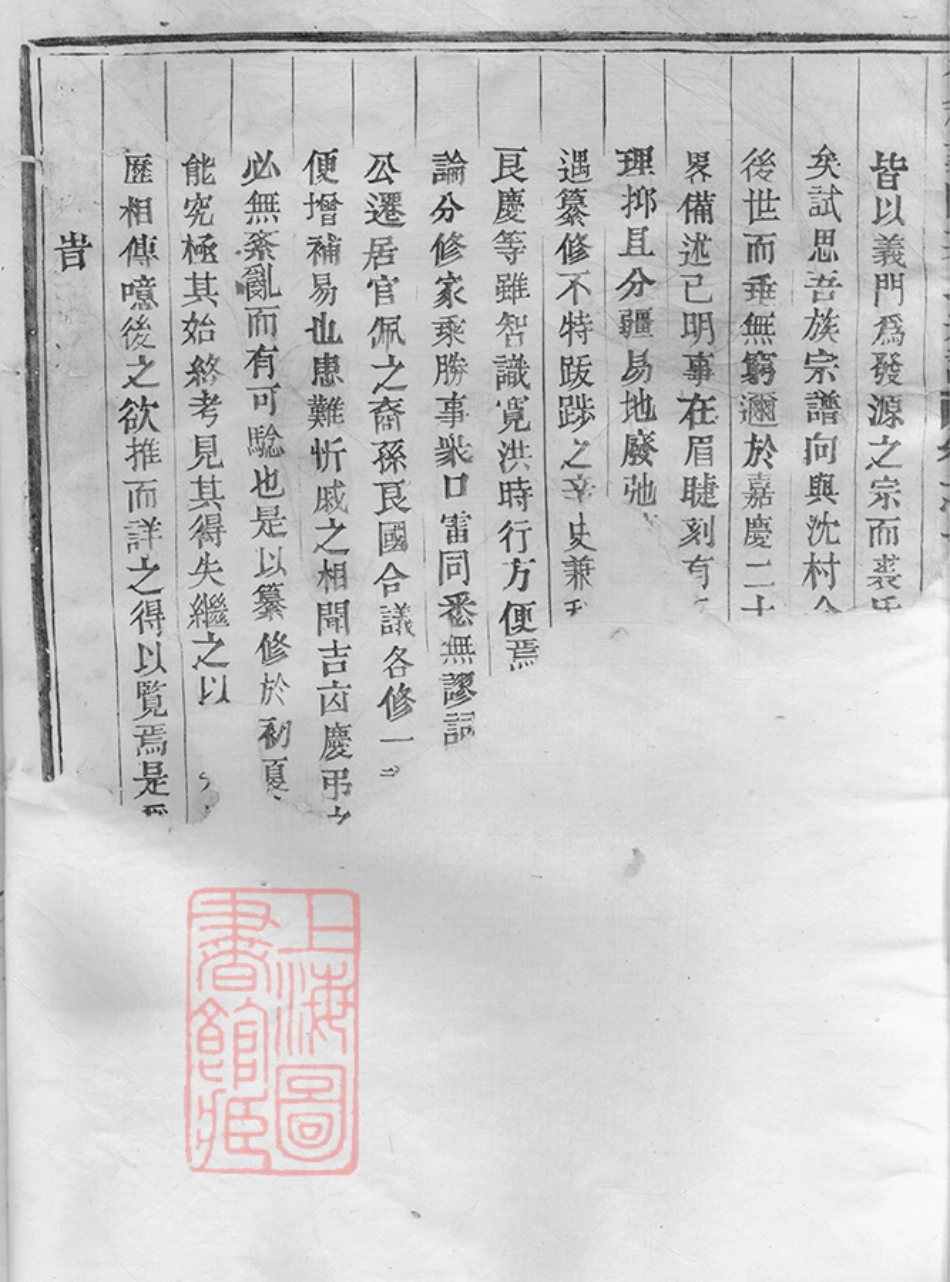 皆以義門爲發源之宗而裘氏
矣試思吾族宗譜向與沈村合
後世而垂無窮邇於嘉慶二十
畧備述已明事在眉睫刻有
理抑且分疆易地廢弛
遇纂修不特跋踄之辛史兼
艮慶等雖智識寬洪時行方便焉
論分修家乘勝事衆口雷同悉無謬詞
公遷居官佩之裔孫艮國合議各修一
便增補易也患難忻戚之相聞吉凶慶弔之
必無紊亂而有可騐也是以纂修於初夏
能究極其始終考見其得失繼之以
歷相傳噫後之欲推而詳之得以覽焉是爲
旹
上海圖
書館藏